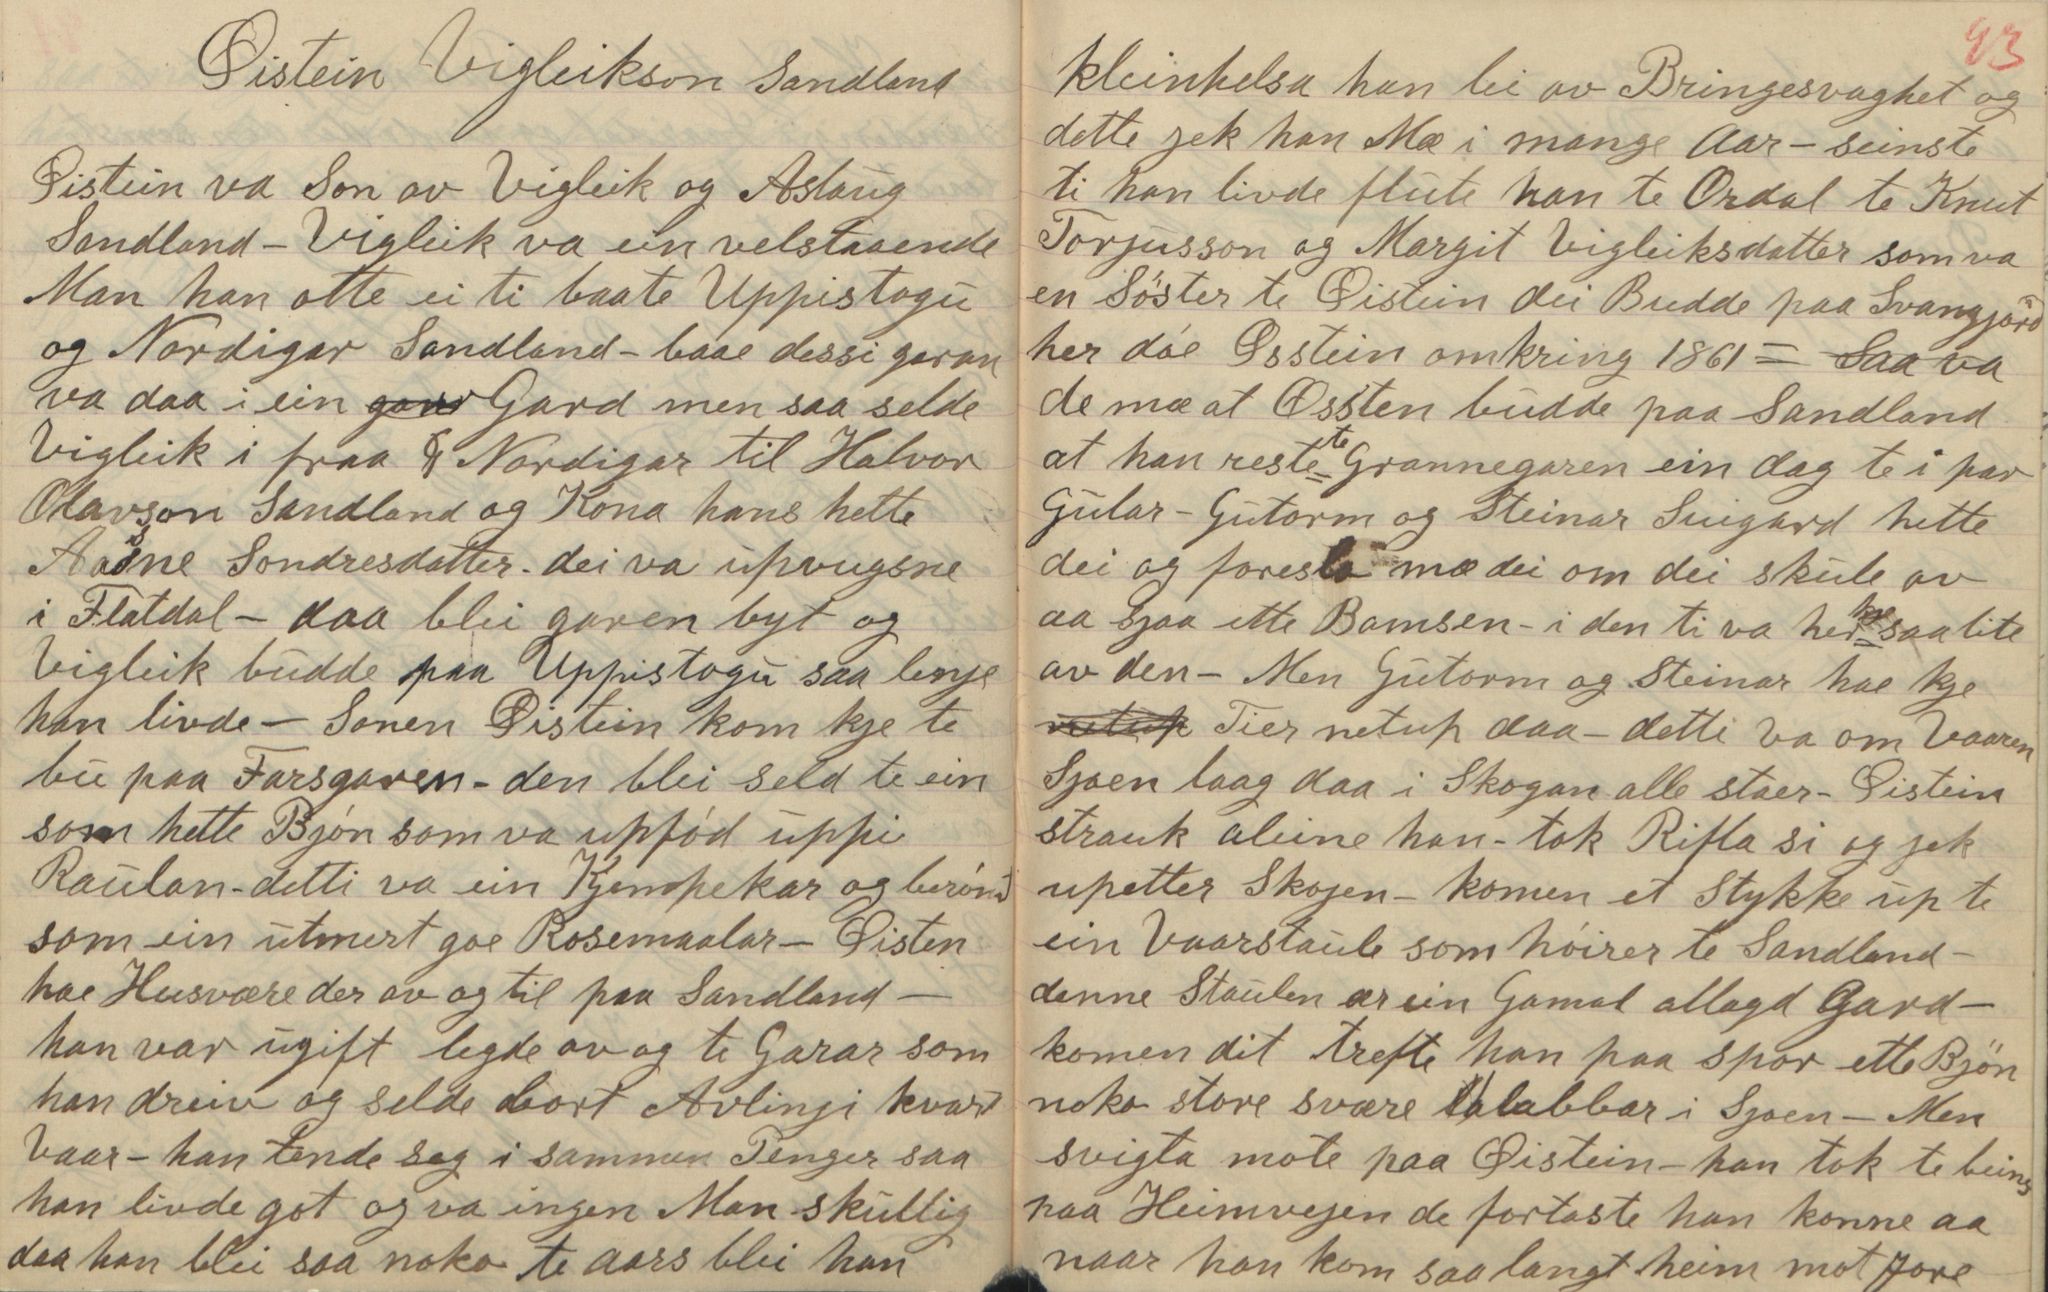 Øistein Vigleikson Sandland
Øistein va Son av Vigleik og Aslaug
Sandland – Vigleik va ein velstaaende
Man han otte ei ti baate Uppistogu
og Nordigar Sandland – baae dessi garan
va daa i ein gard Gard men saa selde
Vigleik i fraa Nordigar til Halvor
Olavson Sandland og Kona hans hette
Aasne Sondresdatter. dei va upvugsne
i Flatdal – daa blei garen byt og
Vigleik budde paa Uppistogu saa lenje
han livde – Sonen Øistein kom kje te
bu paa Farsgaren – den blei seld te ein
som hette Bjón som va upfód uppi
Raulan – detti va ein Kjempekar og berómt
som ein utmert goe Rosemaalar – Øisten
hae Husvære der av og til paa Sandland –
han var ugift legde av og te Garar som
han dreiv og selde bort Avlinji kvart
Vaar – han tende seg i sammen Penger saa
han livde got og va ingen Man skullig
daa han blei saa noko te aars blei han
93
kleinhelsa han lei av Bringesvaghet og
dette jek han Mæ i mange Aar – seinste
ti han livde flute han te Ordal te Knut
Torjusson og Margit Vigleiksdatter som va
en Söster te Øistein dei Budde paa Svangjord
her dóe Øsstein omkring 1861 = Saa va
de mæ at Øssten budde paa Sandland
at han reste te Grannegaren ein dag te i par
Gular – Gutorm og Steinar Suigard hette
dei og foreslo mæ dei om dei skule av
aa sjaa ette Bamsen – i den ti va her kje saa lite
av den – Men Gutorm og Steinar hae kje
netup Tier netup daa – detti va om Vaaren
Sjoen laag daa i Skogan alle staer – Øistein
strauk aleine han – tok Rifla si og jek
upetter Skojen – komen et Stykke up te
ein Vaarstaule som hóirer te Sandland –
denne Staulen ær ein Gamal allagd Gard –
komen dit trefte han paa spor ette Bjön
noko store svære lalabbar i Sjoen – Men
svigta mote paa Øistein – han tok te beins
paa Heimvejen de fortaste han konne aa
naar han kom saa langt heim mot Jore